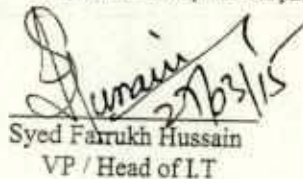 Hussain
27/03/15
Syed Farrukh Hussain
VP / Head of I.T